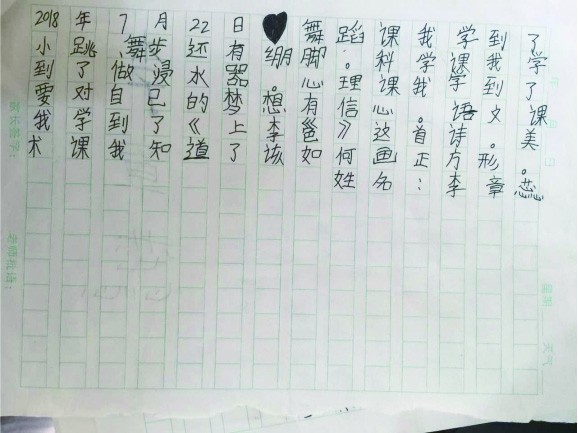 2018年7月22日舞蹈课我学到了
小跳舞步还有绷脚。科学课我学
到了做浸水器。心理课我学到了
要对自己的梦想有信心。语文课
我学到了《上李邕》这首诗。美
术课我知道了该如何画正方形。
姓名：李章蕊
家长签字：
老师批语：
星期
天气